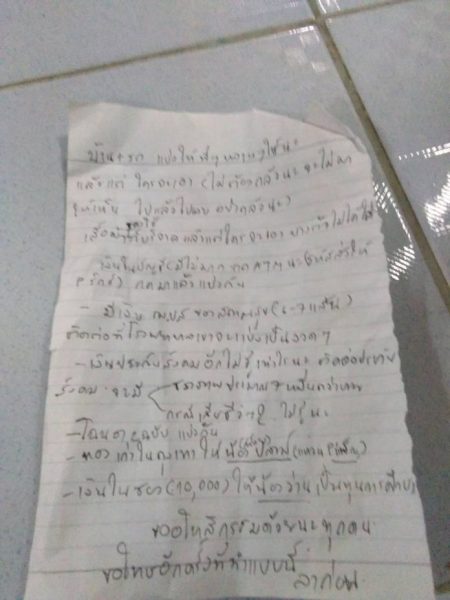 บ้าน+รถ แบ่งให้พี่ๆ หลานๆ ใช้นะ
แล้วแต่ ใครจะเอา (ไม่ต้องกลัวนะ จะไม่มา
ให้เห็น ไปแล้วไปเลย อย่ากลัวนะ)
เสื้อผ้า ของใช้ บริจาค แล้วแต่ใครจะเอา
เงินในบัญชีมีไม่มาก กด ATM นะ
กดมาแล้วแบ่งกัน
- มีเงิน ของสาธารณสุข (6-7 แสน)
ติดต่อที่
- เงินประกันสังคมอีกไม่รู้เท่าไรนะ ติดต่อประกัน
สังคม จะมี ชราภาพประมาณ 7 หมื่นกว่าบาท
กรณีเสียชีวิต ไม่รู้นะ
- โฉนด แบ่งกัน
- ทอง เก่าในถุงเทา ให้
- เงินในซอง (10,000) ให้ เป็นทุนการศึกษา
ขออโหสิกรรมด้วยนะทุกคน
ขอโทษอีกครั้งที่ทำแบบนี้
ลาก่อน